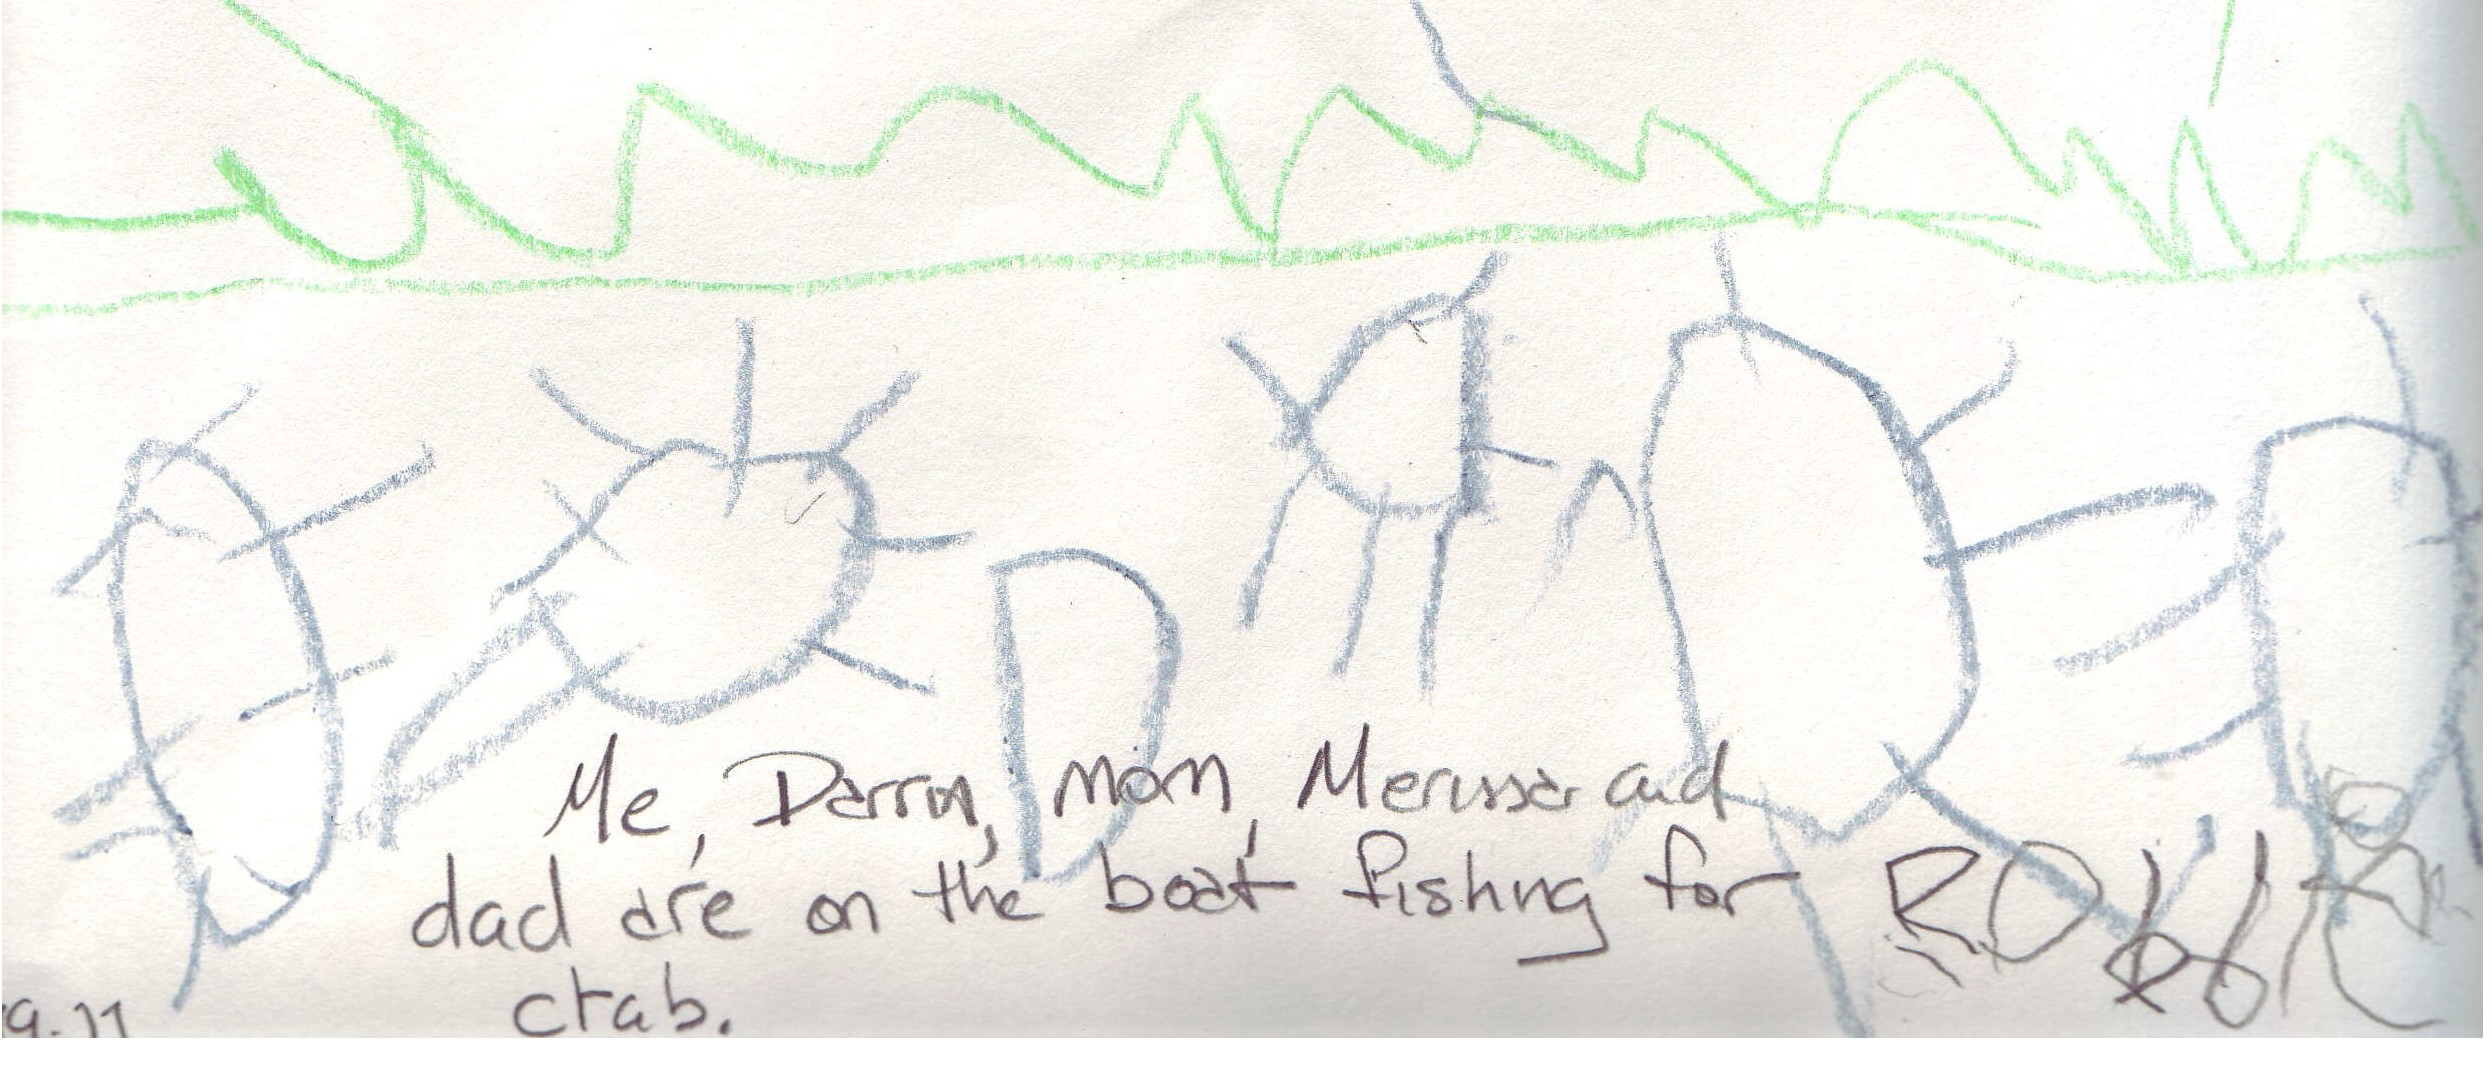 Me, Darrin, mom, Merissa and
dad are on the boat fishing for
crab.
9.11